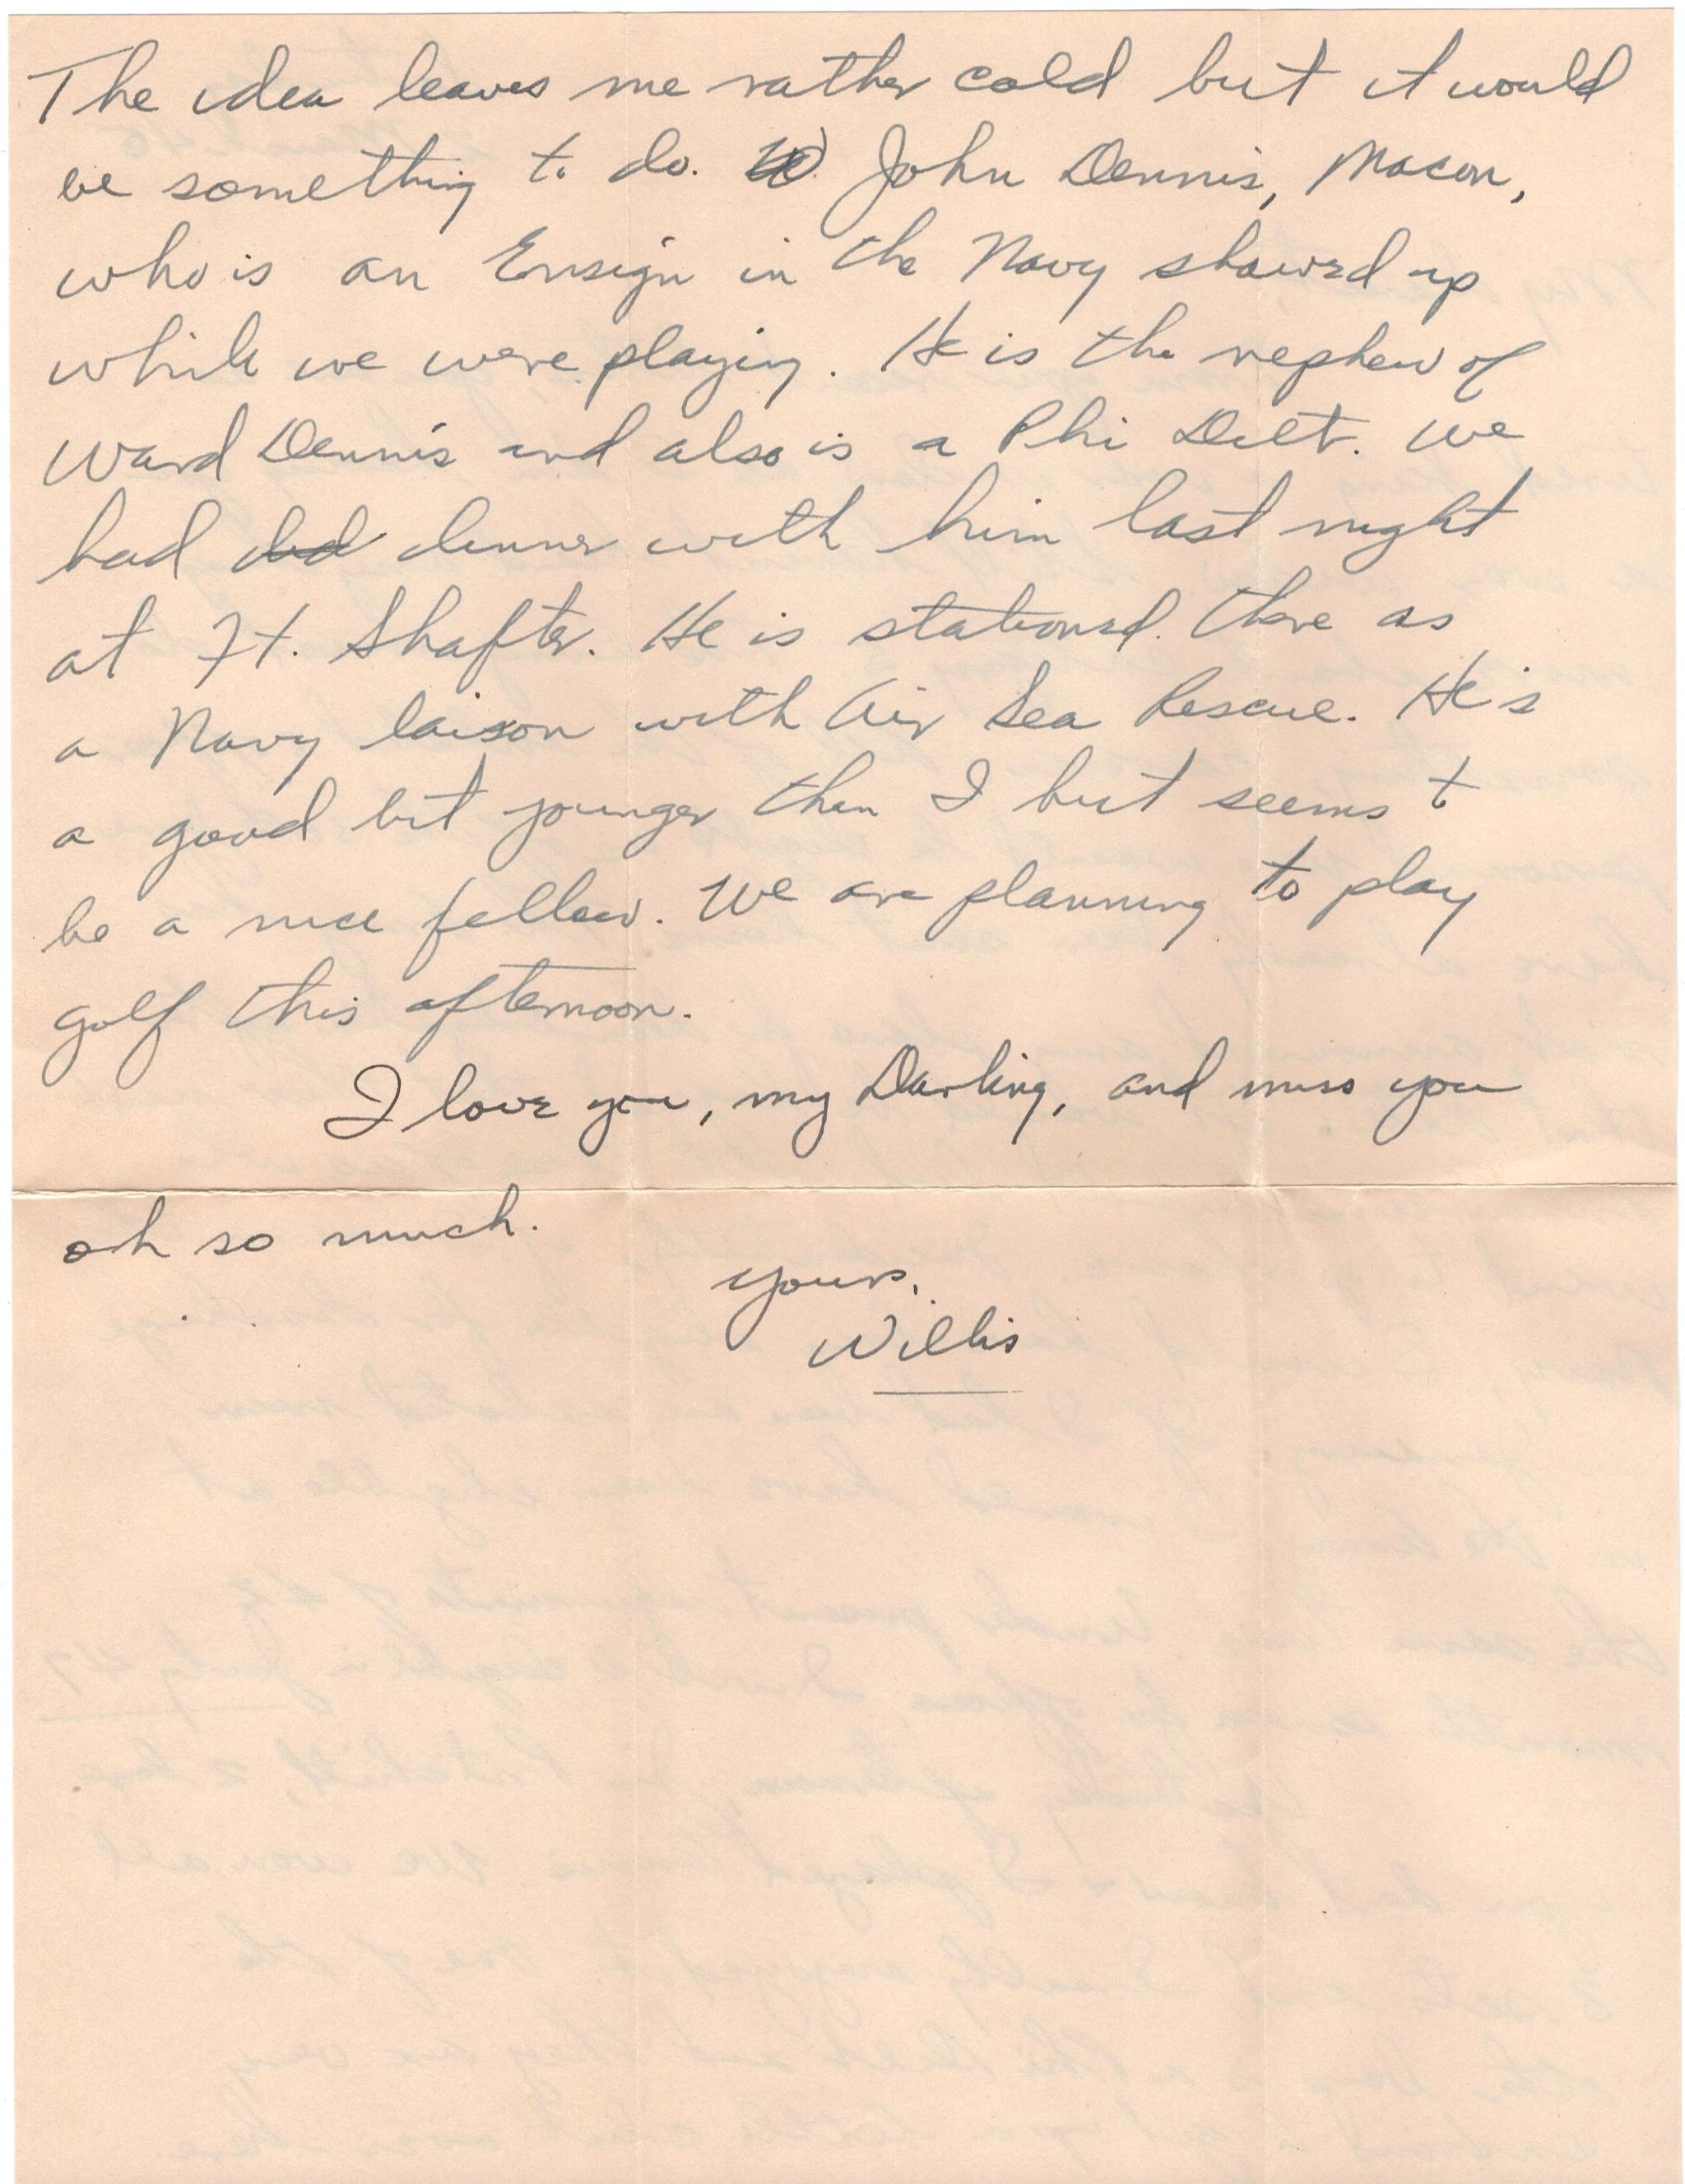 The idea leaves me rather cold but it would
be something to do. John Dennis, Macon,
who is an Ensign in the Navy showed up
while we were playing. He is the nephew of
Ward Dennis and also is a Phi Delt. We
had did dinner with him last night
at Ft. Shafter. He is stationed there as
a Navy laison with Air Sea Rescue. He is
a good bit younger than I but seems to
be a nice fellow. We are planning to play
golf this afternoon.
I love you, my Darling, and miss you
oh so much.
Yours,
Willis